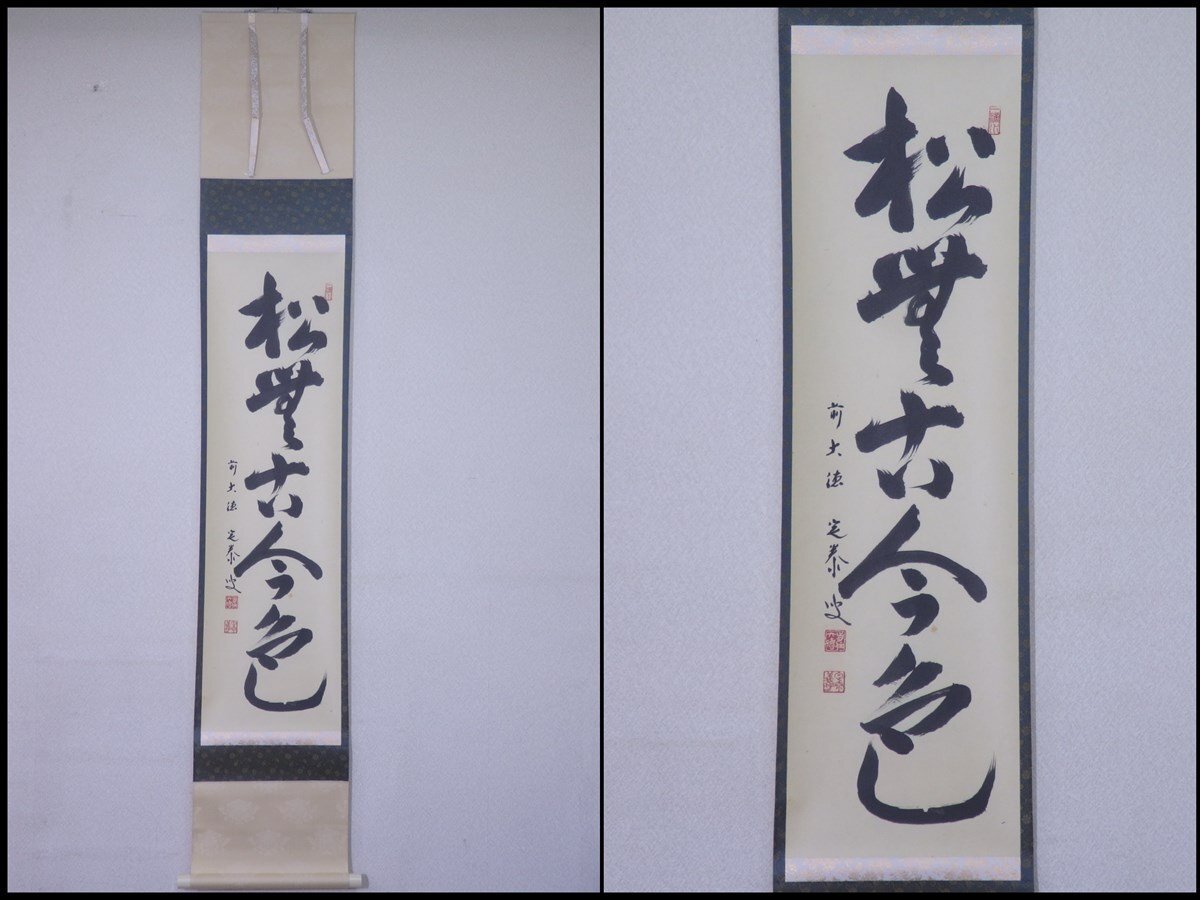 松無古今色
前大徳 宗泰叟
松無古今色
前大徳 宗泰叟